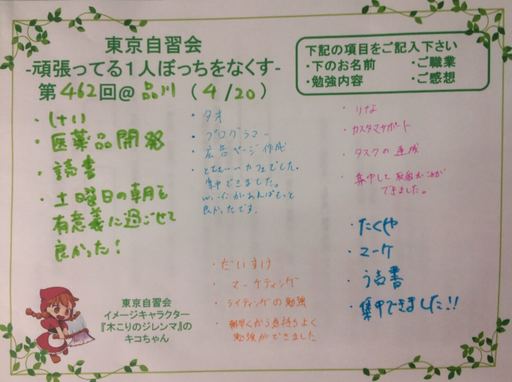 東京自習会
-頑張ってる1人ぼっちをなくす-
第462回@品川(4/20)
下記の項目をご記入下さい
・下のお名前 ・ご職業
・勉強内容 ・ご感想
・けい
・医薬品開発
・読書
・土曜日の朝を
有意義に過ごせて
良かった!
・タオ
・プログラマー
・広告ページ作成
・とてもいいカフェでした。
集中できました。
もっと
良かったです。
・りな
・カスタマーサポート
・タスクの
・集中して
できました。
・だいすけ
・マーケティング
・ライティングの勉強
・朝早くから気持ちよく
勉強ができました
・たくや
・マーケ
・読書
・集中できました!!
東京自習会
イメージキャラクター
『木こりのジレンマ』の
キコちゃん